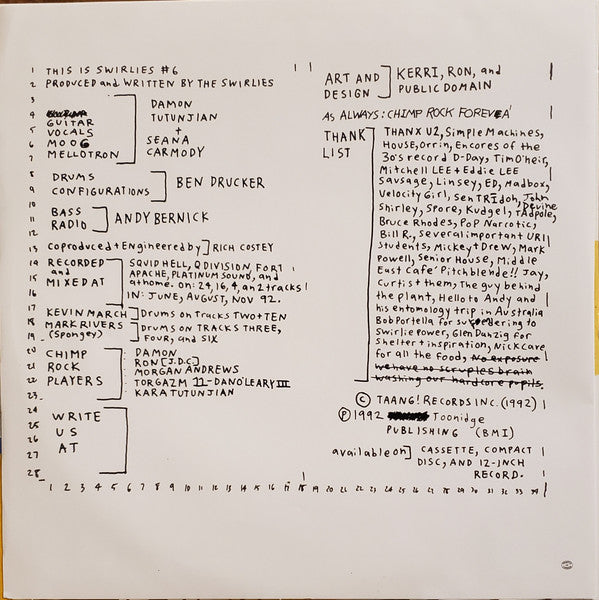 1 THIS IS SWIRLIES #6
2 PRODUCED and WRITTEN BY THE SWIRLIES
3
4
5
6
7
GUITAR
VOCALS
MOOG
MELLOTRON
DAMON
TUTUNJIAN
+
SEANA
CARMODY
8 DRUMS
9 CONFIGURATIONS
BEN DRUCKER
10
11 BASS
12 RADIO
ANDY BERNICK
13 coproduced + Engineered by RICH COSTEY
14 RECORDED
15 and
16 MIXED AT
SQUID HELL, Q DIVISION, FORT
APACHE, PLATINUM SOUND, and
at home. on: 24, 16, 4, an 2 tracks
IN: JUNE, AUGUST, NOV 92.
17 KEVIN MARCH Drums on Tracks TWO + TEN
18 MARK RIVERS
19 (Spongey)
Drums on TRACKS THREE,
FOUR, and SIX
20 CHIMP
21 ROCK
22 PLAYERS
23
DAMON
RON [J.D.C]
MORGAN ANDREWS
TORGAZM II - DANO'LEARY III
KARA TUTUNJIAN
24
25 WRITE
26 US
27 AT
28
1 2 3 4 5 6 7 8 9 10 11 12 13 14 15 16 17 18 19 20 21 22 23 24 25 26 27 28 29 30 31 32 33 34
ART AND
DESIGN
KERRI, RON, and
PUBLIC DOMAIN
AS ALWAYS: CHIMP ROCK FOREVEA'
THANK
LIST
THANX U2, Simple Machines,
HOUSE, Orrin, Encores of the
30's record D-Day, Tim O'heir,
Mitchell LEE + Eddie LEE
Sausage, Linsey, ED, Madbox,
Velocity Girl, Sen TRIdoh, John
Devine
Shirley, Spore, Kudgel, TAdpole,
Bruce Rhodes, Pop Narcotic,
Bill R., Several important URI
Students, Mickey + Drew, Mark
Powell, Senior House, Middle
East Cafe' Pitchblende!! Jay,
Curtis + them, The guy behind
the plant, Hello to Andy and
his entomology trip in Australia
Bob Portella for surrendering to
Swirlie Power, Glen Danzig for
Shelter + inspiration, Nick Cave
for all the food, No exposure
we have no scruples brain
washing our hardcore pupils.
© TAANG! RECORDS INC. (1992)
℗ 1992 Toonidge
PUBLISHING (BMI)
available on CASSETTE, COMPACT
DISC, AND 12-INCH
RECORD.